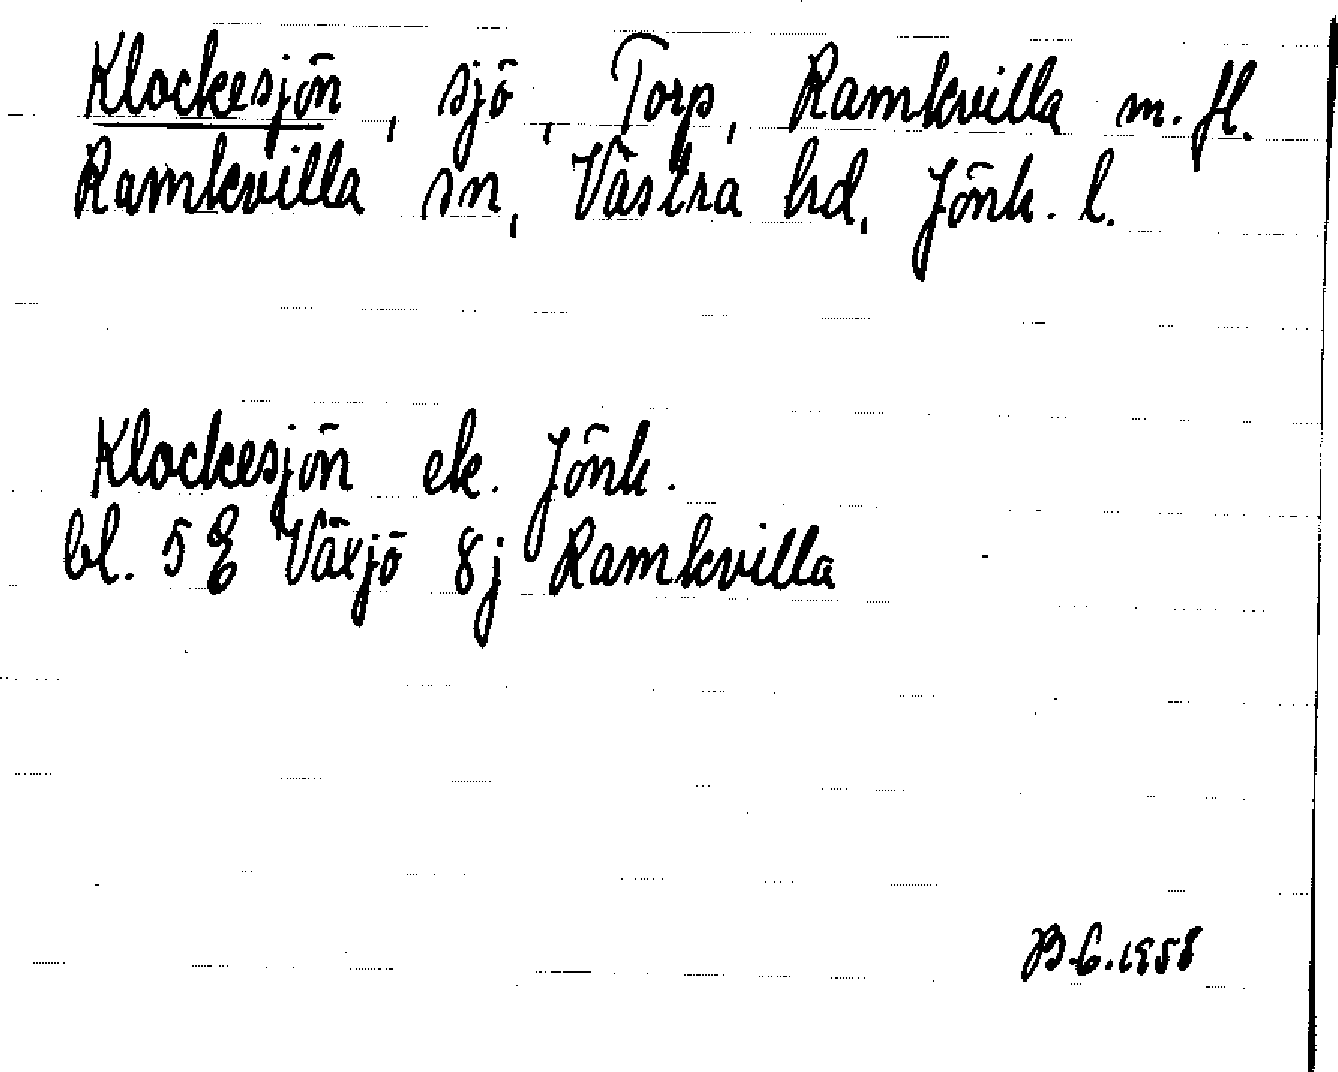 Klockesjön, sjö, Torp, Ramkvilla m. fl.
Ramkvilla sn, Västra hd, Jönk. l.
Klockesjön ek. Jönk.
bl. 5 E Växjö 8j Ramkvilla
B.C. 1958